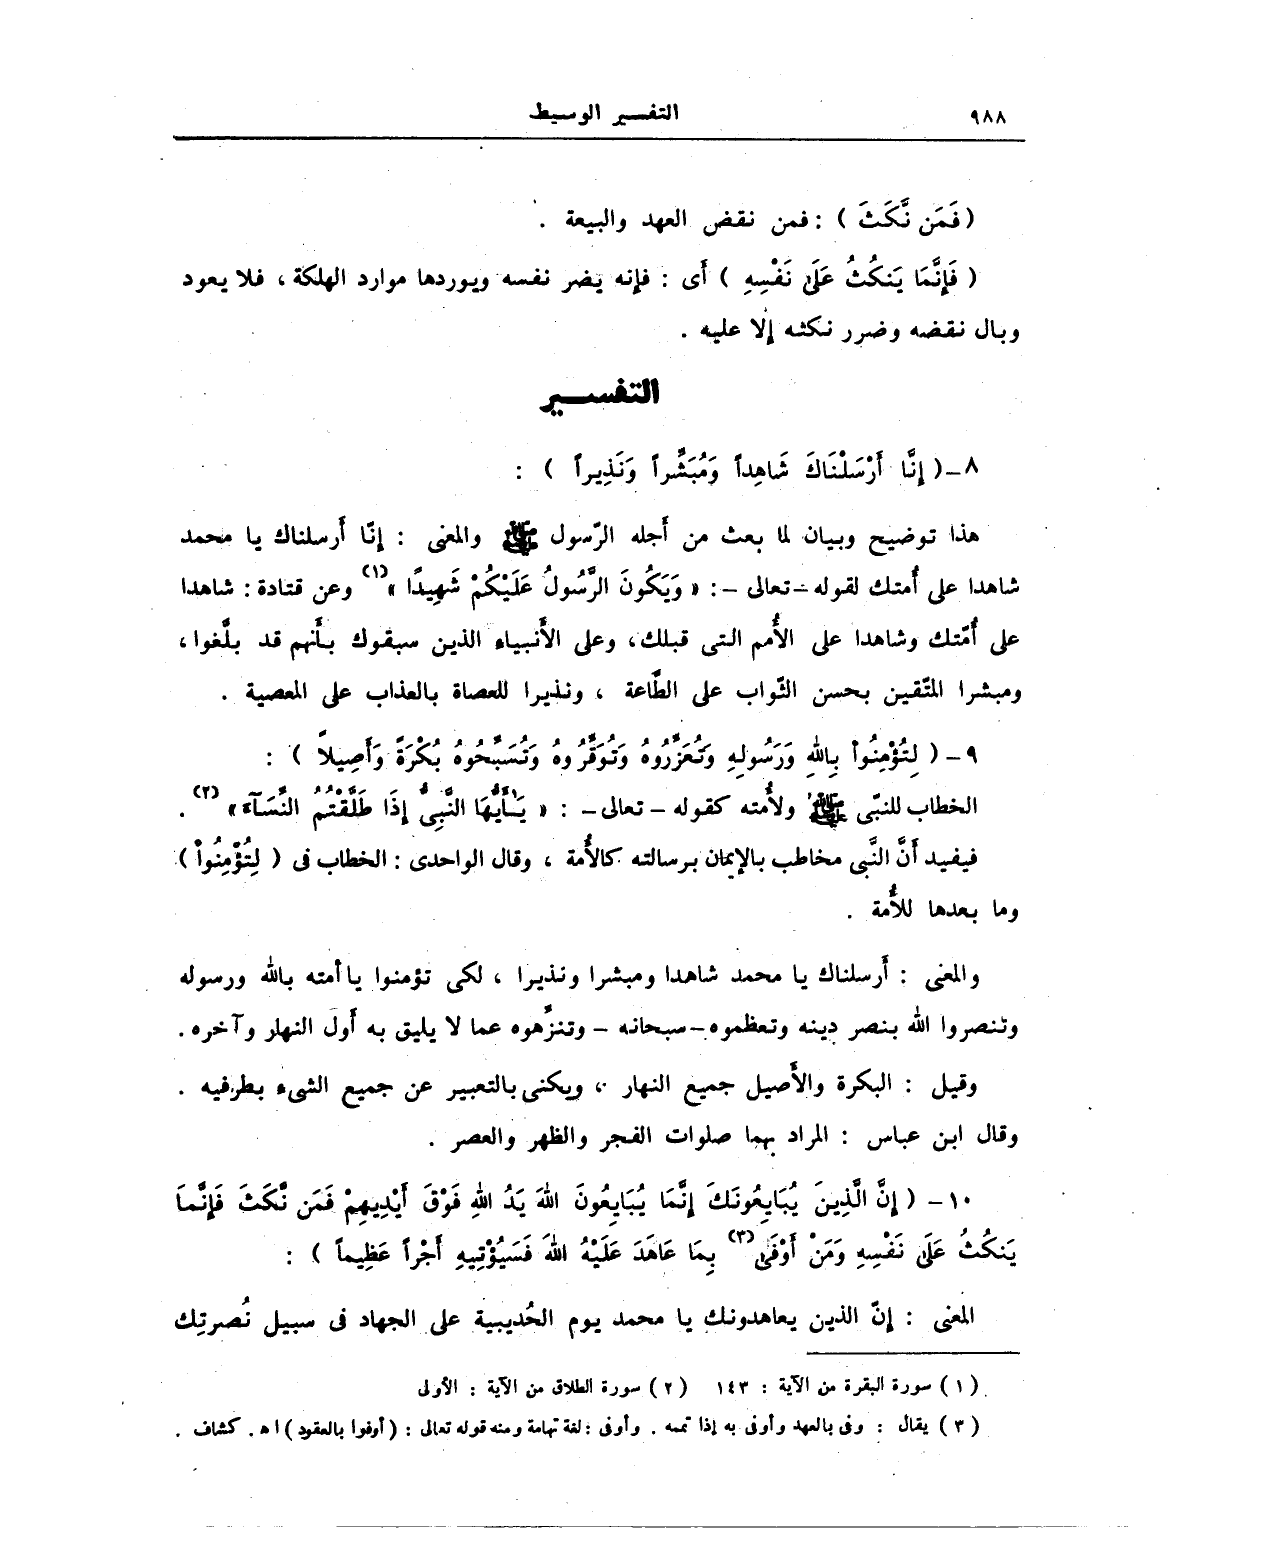 ٩٨٨
التفسير الوسيط
( فَمَن نَّكَثَ ) : فمن نقض العهد والبيعة .
( فَإِنَّمَا يَنكُثُ عَلَىٰ نَفْسِهِ ) أَى : فإنه يضر نفسه ويوردها موارد الهلكة ، فلا يعود
وبال نقضه وضرر نكثه إلا عليه .
التفسير
٨ـ ( إِنَّا أَرْسَلْنَاكَ شَاهِداً وَمُبَشِّراً وَنَذِيراً ) :
هذا توضيح وبيان لما بعث من أَجله الرّسول ﷺ والمعنى : إنّا أَرسلناك يا محمد
شاهدا على أُمتك لقوله ـ تعالى ـ : « وَيَكُونَ الرَّسُولُ عَلَيْكُمْ شَهِيدًا »(١) وعن قتادة : شاهدا
على أُمّتك وشاهدا على الأُمم التى قبلك ، وعلى الأَنبياء الذين سبقوك بأَنهم قد بلَّغوا ،
ومبشرا المتّقين بحسن الثّواب على الطَّاعة ، ونذيرا للعصاة بالعذاب على المعصية .
٩ـ ( لِتُؤْمِنُواْ بِاللهِ وَرَسُولِهِ وَتُعَزِّرُوهُ وَتُوَقِّرُوهُ وَتُسَبِّحُوهُ بُكْرَةً وَأَصِيلاً ) :
الخطاب للنبّى ﷺ ولأُمته كقوله ـ تعالى ـ : « يَـٰٓأَيُّهَا النَّبِىُّ إِذَا طَلَّقْتُمُ النِّسَآءَ » (٢) .
فيفيد أَنَّ النَّبى مخاطب بالإيمان برسالته كالأُمة ، وقال الواحدى : الخطاب فى ( لِتُؤْمِنُواْ )
وما بعدها للأُمة .
والمعنى : أَرسلناك يا محمد شاهدا ومبشرا ونذيرا ، لكى تؤمنوا يا أمته بالله ورسوله
وتنصروا الله بنصر دينه وتعظموه ـ سبحانه ـ وتنزِّهوه عما لا يليق به أَول النهار وآخره .
وقيل : البكرة والأَصيل جميع النهار ، ويكنى بالتعبير عن جميع الشىء بطرفيه .
وقال ابن عباس : المراد بهما صلوات الفجر والظهر والعصر .
١٠ـ ( إِنَّ الَّذِينَ يُبَايِعُونَكَ إِنَّمَا يُبَايِعُونَ اللهَ يَدُ اللهِ فَوْقَ أَيْدِيهِمْ فَمَن نَّكَثَ فَإِنَّمَا
يَنكُثُ عَلَىٰ نَفْسِهِ وَمَنْ أَوْفَىٰ(٣) بِمَا عَاهَدَ عَلَيْهُ اللهَ فَسَيُؤْتِيهِ أَجْراً عَظِيماً ) :
المعنى : إنّ الذين يعاهدونك يا محمد يوم الحُديبية على الجهاد فى سبيل نُصرتِك
( ١ ) سورة البقرة من الآية : ١٤٣ ( ٢ ) سورة الطلاق من الآية : الأولى
( ٣ ) يقال : وفى بالعهد وأوفى به إذا تممه . وأوفى : لغة تهامة ومنه قوله تعالى : ( أوفوا بالعقود ) اه . كشاف .